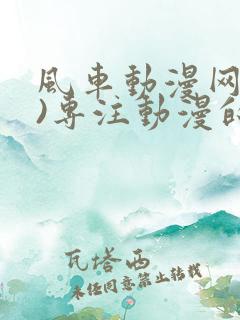 風车動漫网
)专注動漫的
瓦塔西
未经同意禁止转载